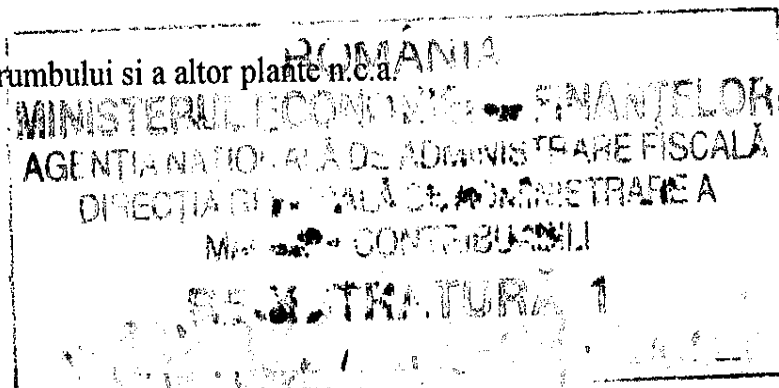 rumbului si a altor plante n.c.a.
ROMÂNIA
MINISTERUL ECONOMIEI FINANȚELOR
AGENȚIA NAȚIONALĂ DE ADMINISTRARE FISCALĂ
DIRECȚIA GENERALĂ DE ADMINISTRARE A
CONTRIBUABILI
REGISTRATURĂ 1